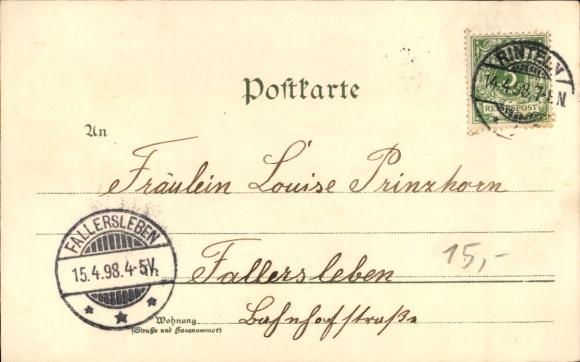 Postkarte
RINTELN
14.4.98.7-8N.
5
REICHSPOST
An
Fräulein Louise Prinzhorn
FALLERSLEBEN
15.4.98.4-5V.
Fallersleben
15,-
Bahnhofstraße
Wohnung
(Straße und Hausnummer)